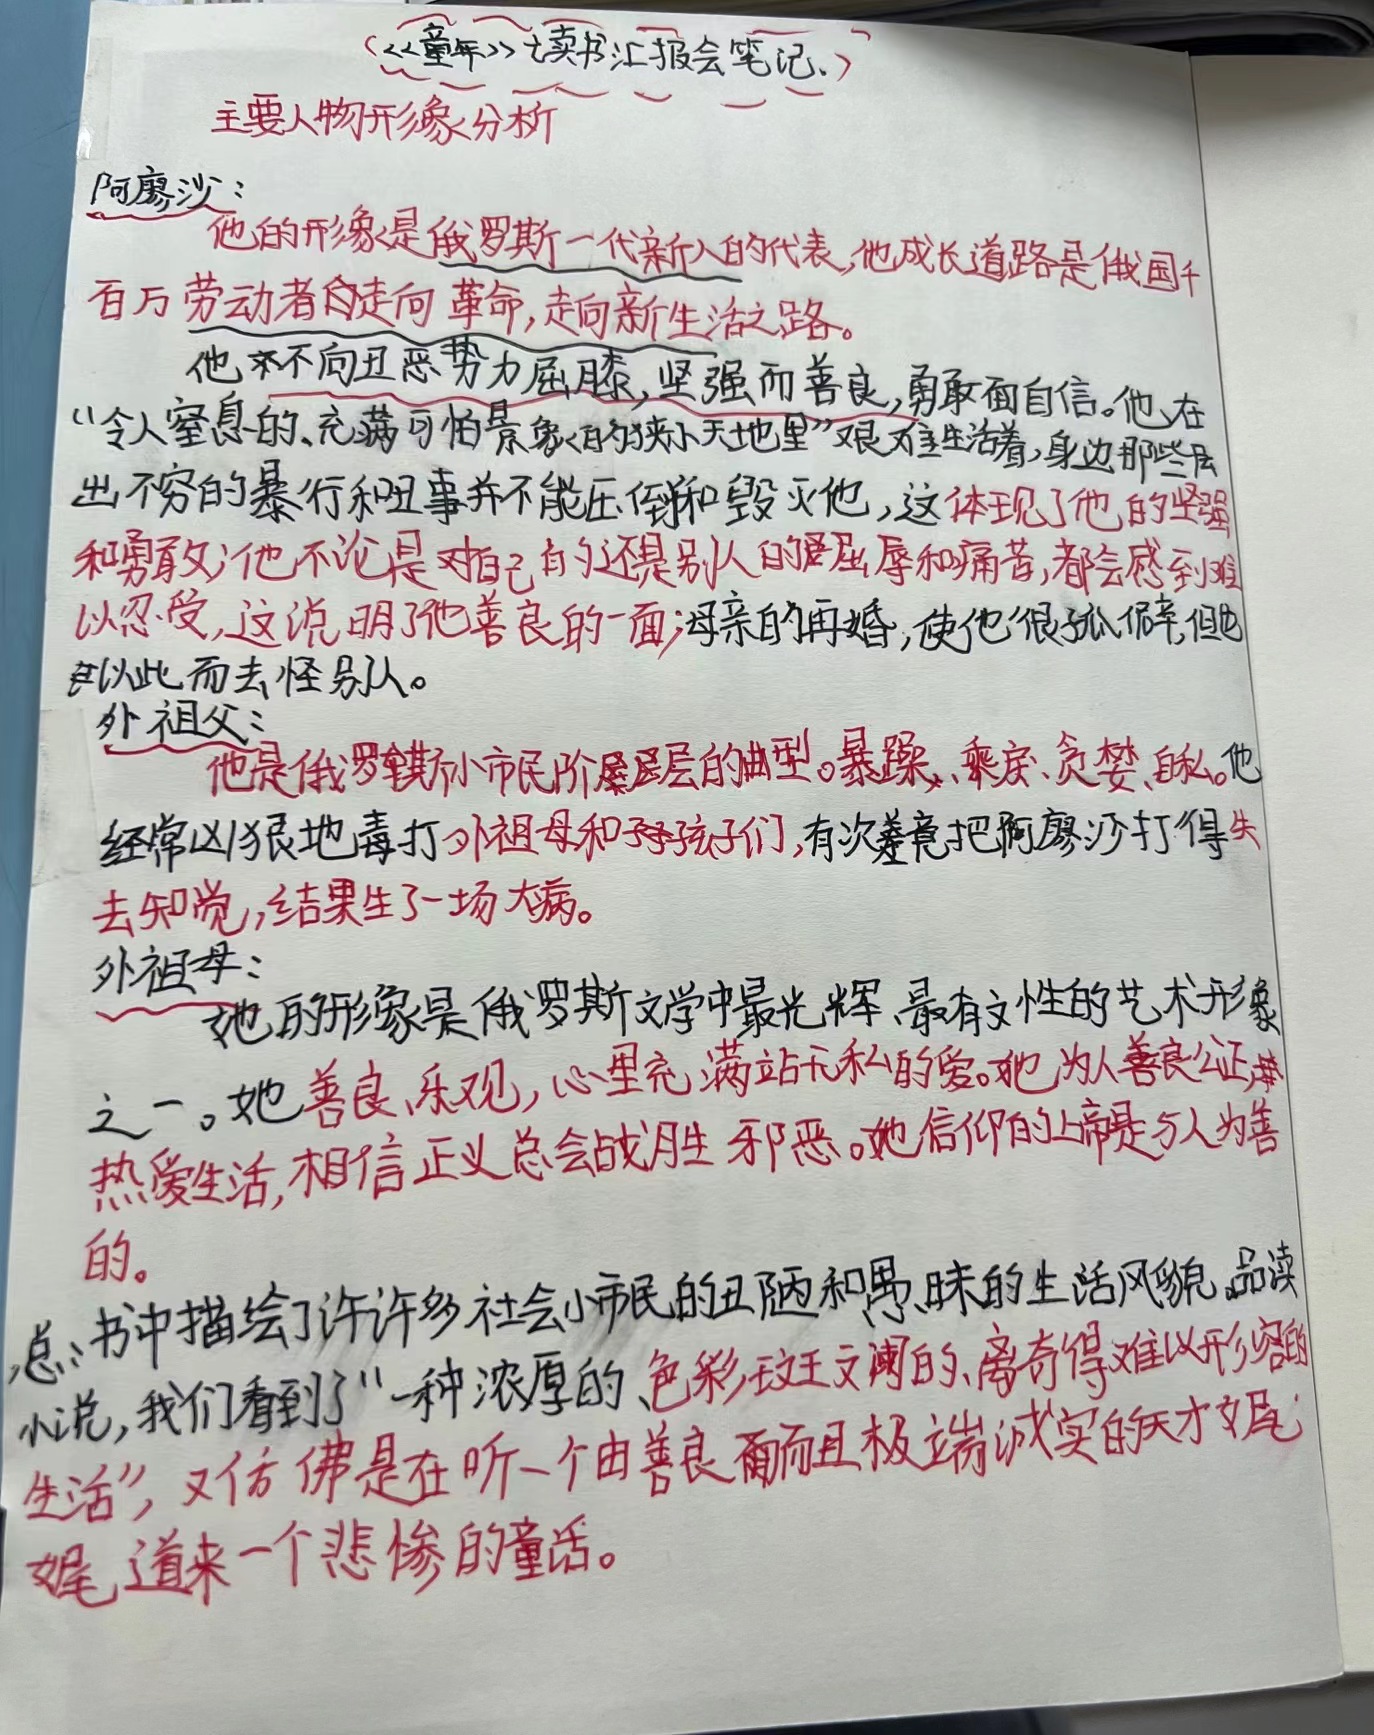 《童年》读书汇报会笔记
主要人物形象分析
阿廖沙：
他的形象是俄罗斯一代新人的代表，他成长道路是俄国千
百万劳动者的走向革命，走向新生活之路。
他不向丑恶势力屈膝，坚强而善良，勇敢面自信。他在
“令人窒息的、充满可怕景象的狭小天地里”艰难生活着，身边那些层
出不穷的暴行和丑事并不能压倒和毁灭他，这体现了他的坚强
和勇敢；他不论是对自己的还是别人的屈辱和痛苦，都会感到难
以忍受，这说明了他善良的一面；母亲的再婚，使他很孤僻，但也
以此而去怪别人。
外祖父：
他是俄罗斯小市民阶层的典型。暴躁、乘戾、贪婪、自私。他
经常凶狠地毒打外祖母和孩子们，有次竟把阿廖沙打得失
去知觉，结果生了一场大病。
外祖母：
她的形象是俄罗斯文学中最光辉、最有文性的艺术形象
之一。她善良、乐观，心里充满站无私的爱。她为人善良公正，
热爱生活，相信正义总会战胜邪恶。她信仰的上帝是与人为善
的。
总：书中描绘了许许多多社会小市民的丑陋和愚昧的生活风貌。品读
小说，我们看到了“一种浓厚的、色彩斑斓的、离奇得难以形容的
生活”，又仿佛是在听一个由善良而且极端诚实的天才娓
娓道来一个悲惨的童话。